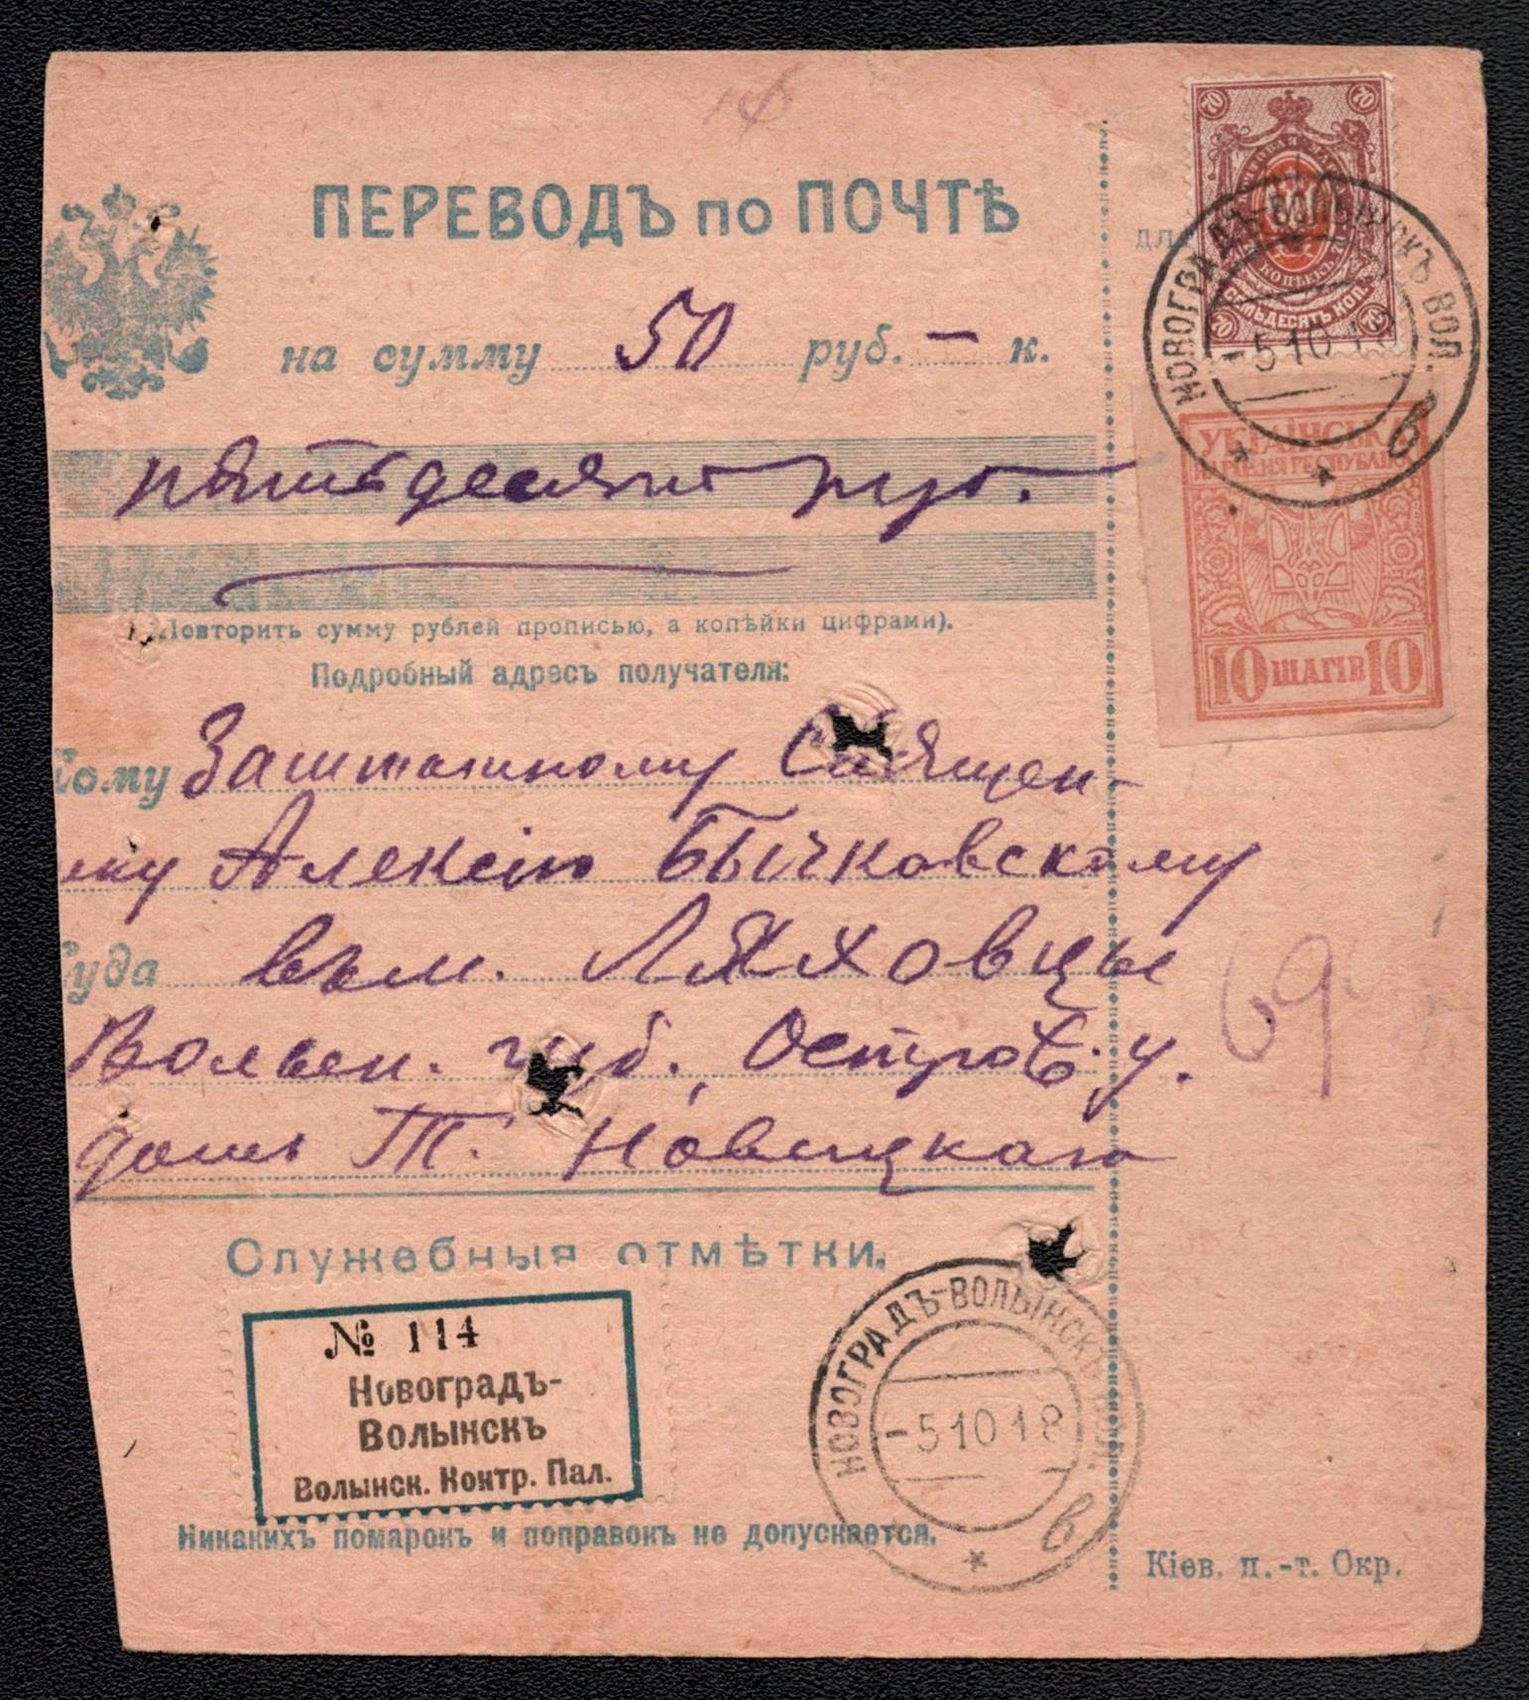 ПЕРЕВОДЪ по ПОЧТѢ
на сумму 50 руб. — к.
пятьдесятъ руб.
Повторить сумму рублей прописью, а копѣйки цифрами).
Подробный адресъ получателя:
Кому Заштатному Священ-
нику Алексію Бычковскому
Куда въ м. Ляховцы
Волын. губ., Остров. у.
домъ Т. Новицкаго
Служебныя отмѣтки.
№ 114
Новоградъ-
Волынскъ
Волынск. Контр. Пал.
Никакихъ помарокъ и поправокъ не допускается.
НОВОГРАДЪ-ВОЛЫНСКЪ ВОЛ.
-5 10 18
в
Кіев. п.-т. Окр.
70 70
СЕМЬДЕСЯТЪ КОП.
70 70
НОВОГРАДЪ-ВОЛЫНСКЪ ВОЛ.
-5 10 1
в
УКРАЇНСЬКА
НАРОДНЯ РЕСПУБЛІКА
10 ШАГІВ 10
69